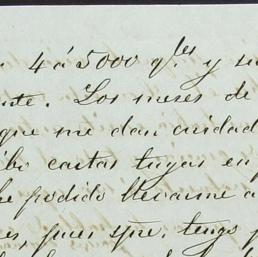 4 á 5000 q.les y su
Los meses de
que me dan cuidad
cartas tuyas en p
he podido llevarme a
es, pues spre. tengo p